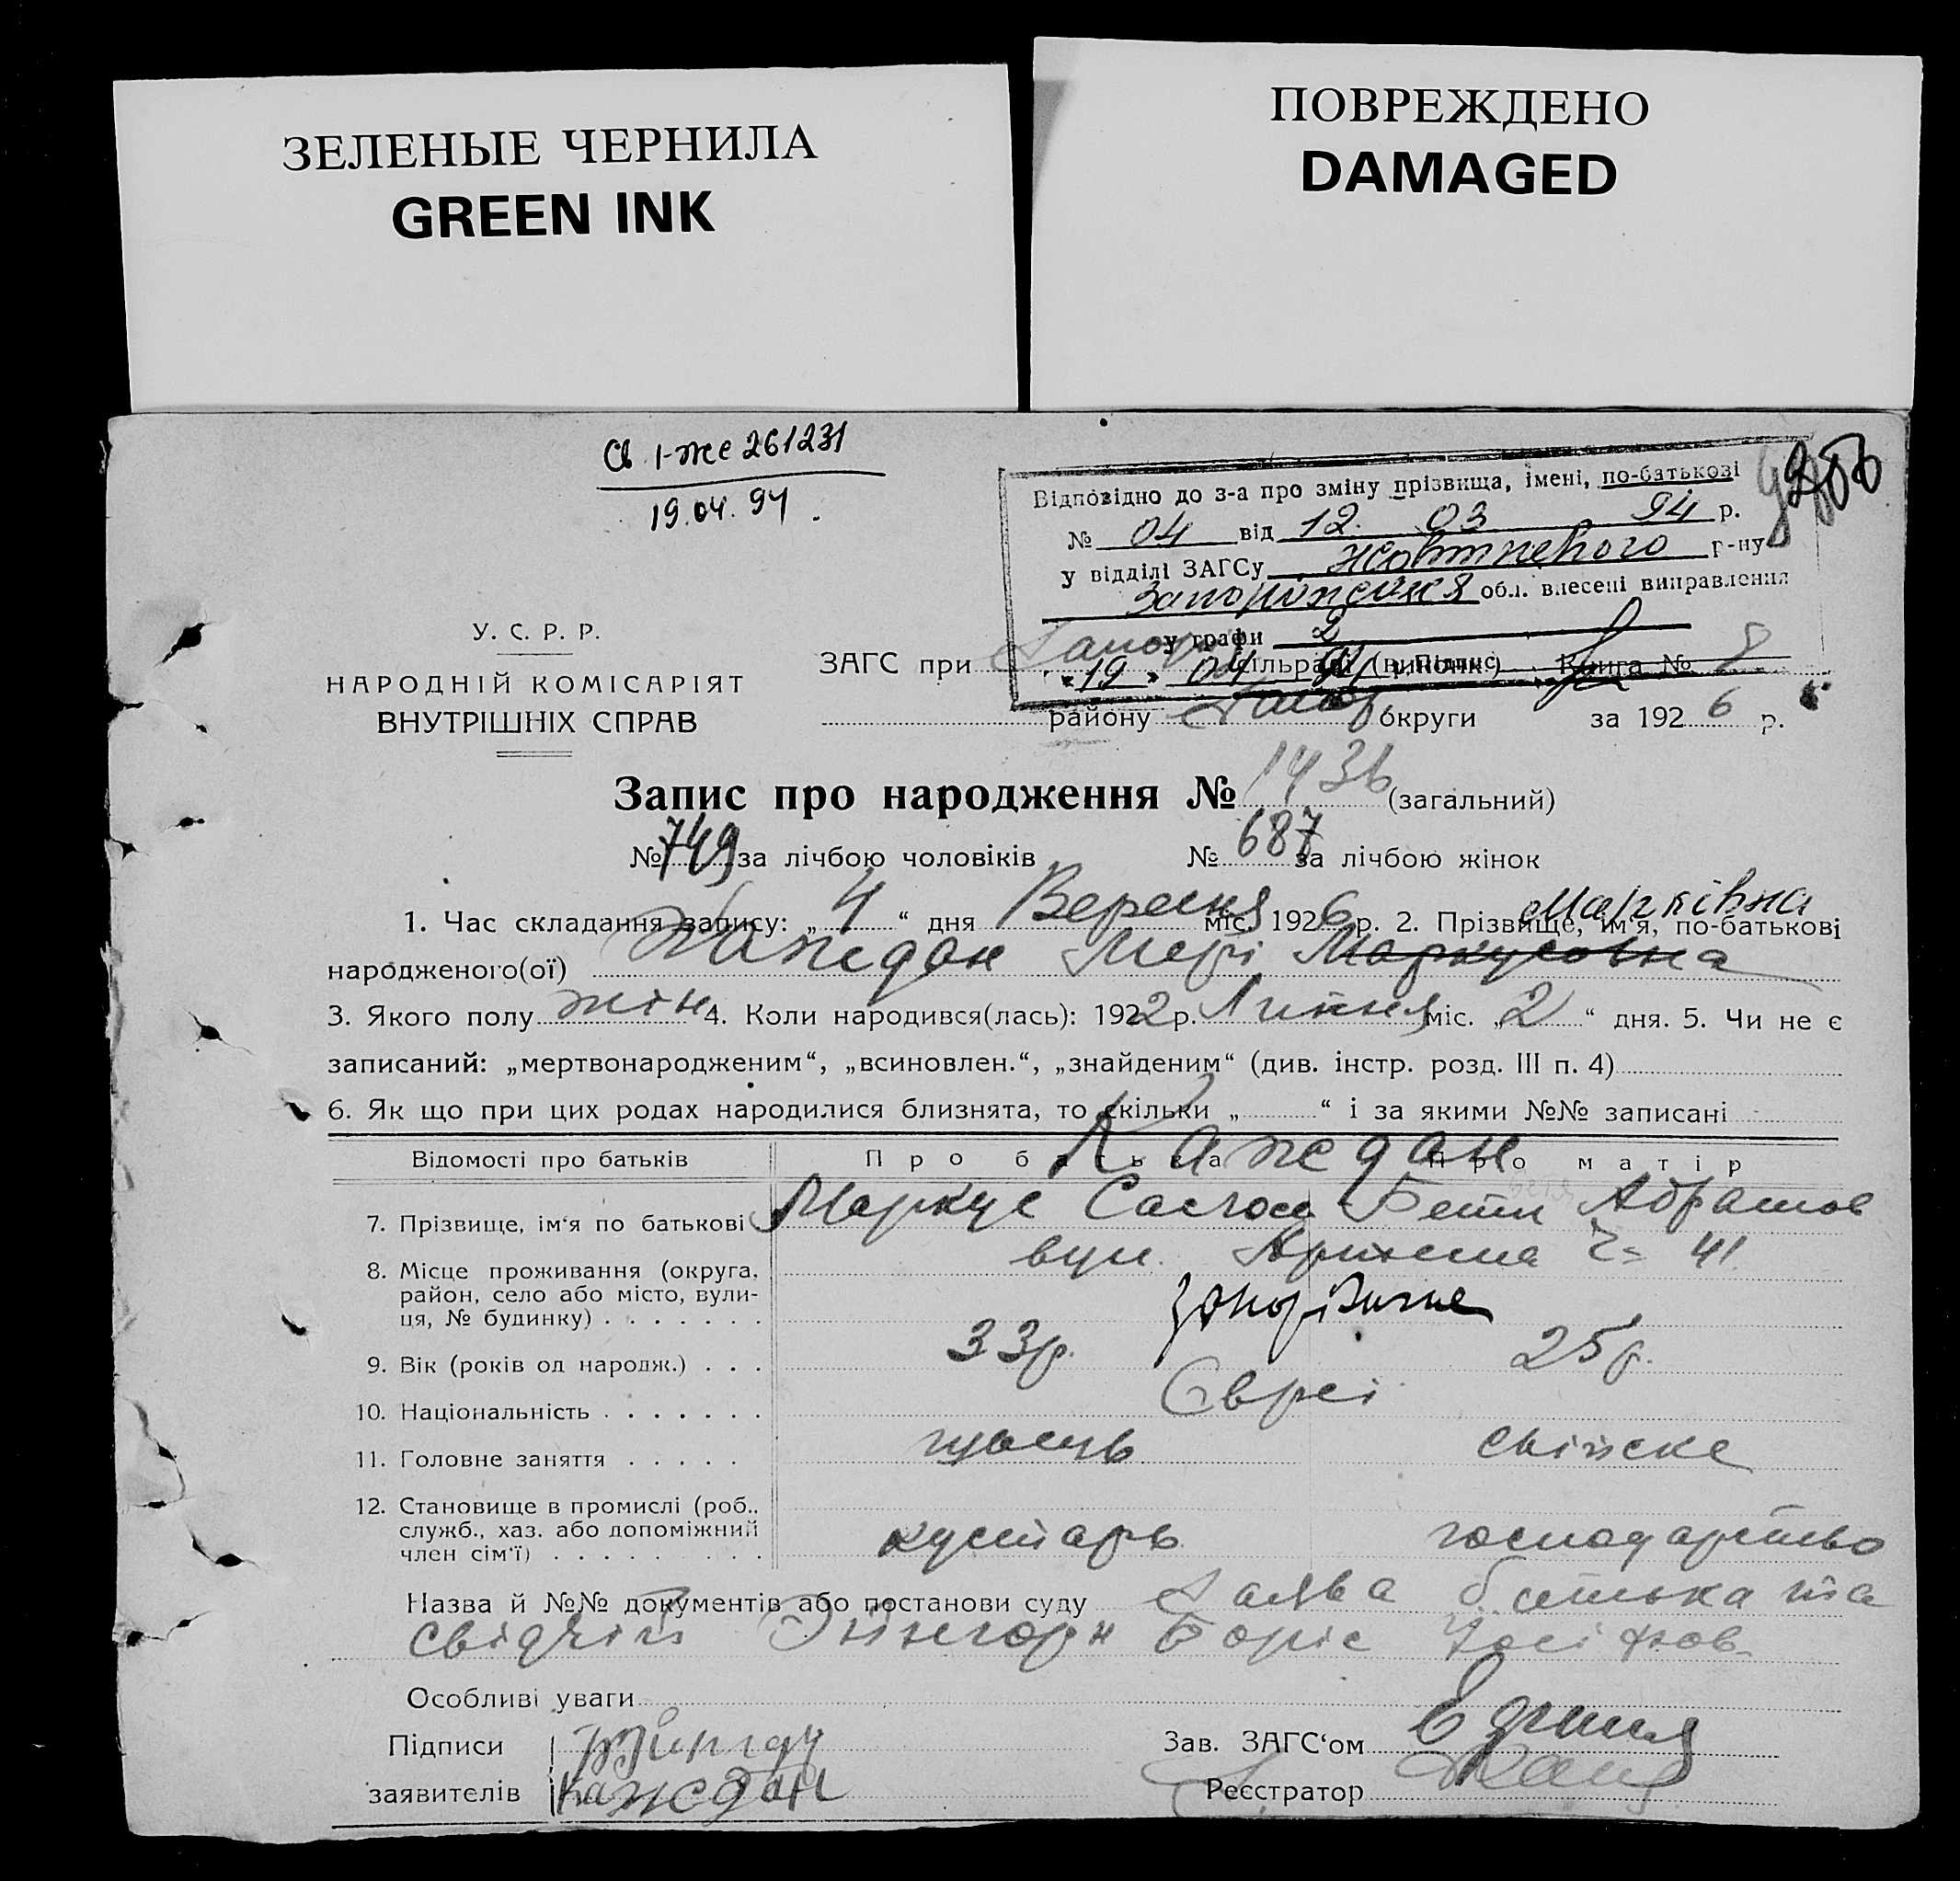 ЗЕЛЕНЫЕ ЧЕРНИЛА
GREEN INK
ПОВРЕЖДЕНО
DAMAGED
Св. I-же 261231
19.04.94.
Відповідно до з-а про зміну прізвища, імені, по-батькові
№ 04 від 12. 03 94 р.
у відділі ЗАГСу Жовтневого р-ну
Запорожския обл. внесені виправлення
у графи 2
"19" 04 94 р. Підпис
У. С. Р. Р.
НАРОДНІЙ КОМІСАРІЯТ
ВНУТРІШНІХ СПРАВ
ЗАГС при Запор сільраді (виконк) Книга №
району Запор. округи за 1926 р.
Запис про народження № 1436 (загальний)
№ 749 за лічбою чоловіків № 687 за лічбою жінок
Марківна
1. Час складання запису: „4“ дня Вересня міс. 1926 р. 2. Прізвище, ім'я, по-батькові
народженого(ої) Каждан Мері Маркусовна
3. Якого полу жін. 4. Коли народився(лась): 1922 р. Липня міс. „2“ дня. 5. Чи не є
записаний: „мертвонародженим“, „всиновлен.“, „знайденим“ (див. інстр. розд. III п. 4)
6. Як що при цих родах народилися близнята, то скільки „ “ і за якими №№ записані
Відомості про батьків Про батька Про матір
Каждан
7. Прізвище, ім'я по батькові Маркус Бети Абрамов
8. Місце проживання (округа, район, село або місто, вули-ця, № будинку) вул. Артема 41
Запоріжжє
9. Вік (років од народж.) 33р. 25р.
10. Національність Євреї
11. Головне заняття свійске
12. Становище в промислі (роб., служб., хаз. або допоміжний член сім'ї) кустарь господарство
Назва й №№ документів або постанови суду Заява батька та
свідків Эйнгорн Боріс Йосіфов
Особливі уваги
Підписи Зав. ЗАГС'ом
заявителів Каждан Реєстратор